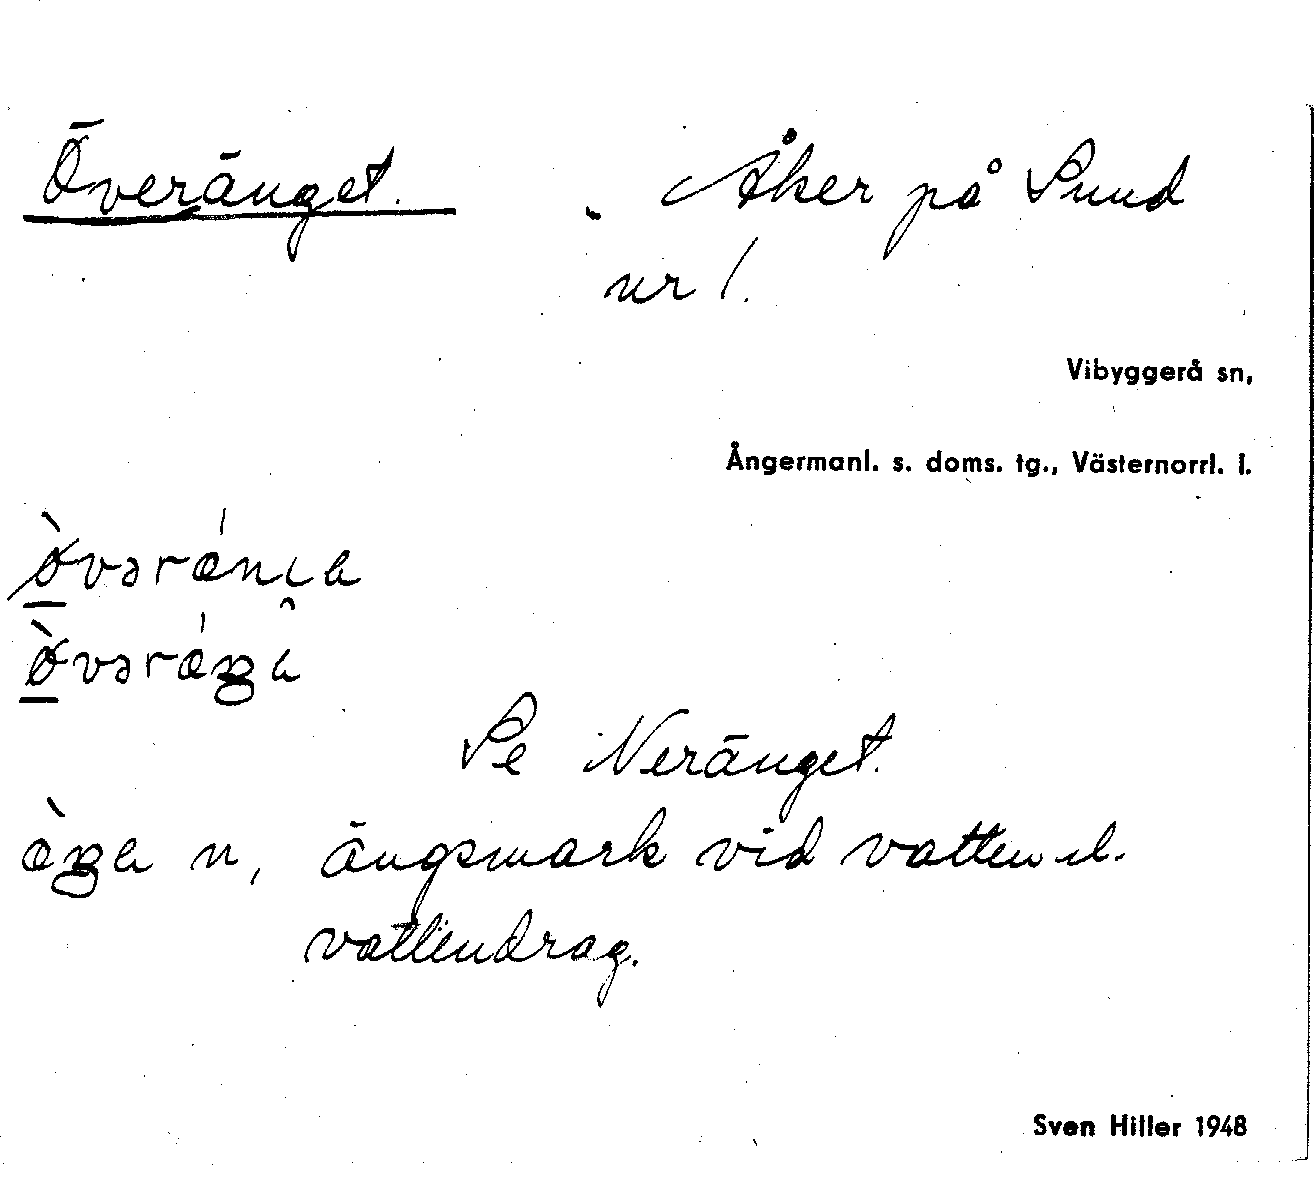 Överänget. Åker på Sund
nr 1.
Vibyggerå sn,
Ångermanl. s. doms. tg., Västernorrl. l.
Se Neränget.
n, ängsmark vid vatten el.
vattendrag.
Sven Hiller 1948